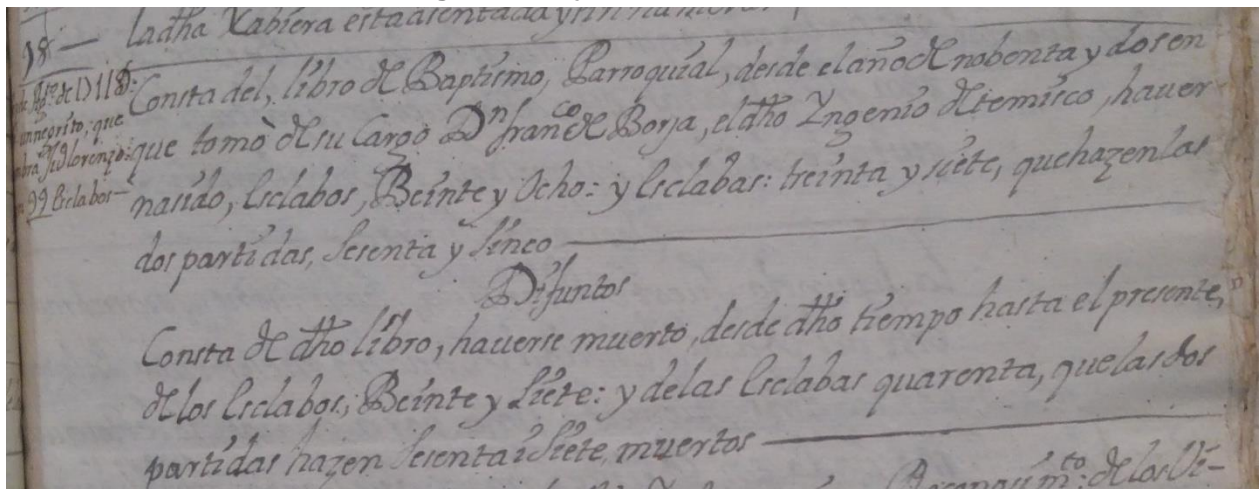 98 — la dha Xabiera esta asentada y sin numero
Rto. de D118:
un negrito, que
Lorenzo:
99 Esclabos —
Consta del, libro de Baptismo, Parroquial, desde el año de nobenta y dos en
que tomò de su Cargo Dn franco de Borja, el dho Yngenio de temisco, haver
nasido, Esclabos, Beinte y Ocho: y Esclabas: treinta y siete, que hazen las
dos partidas, sesenta y sinco
Difuntos
Consta de dho libro, hauerse muerto, desde dho tiempo hasta el presente,
de los Esclabos, Beinte y Siete: y de las Esclabas quarenta, que las dos
partidas hazen sesenta i Siete, muertos
de los Vi-